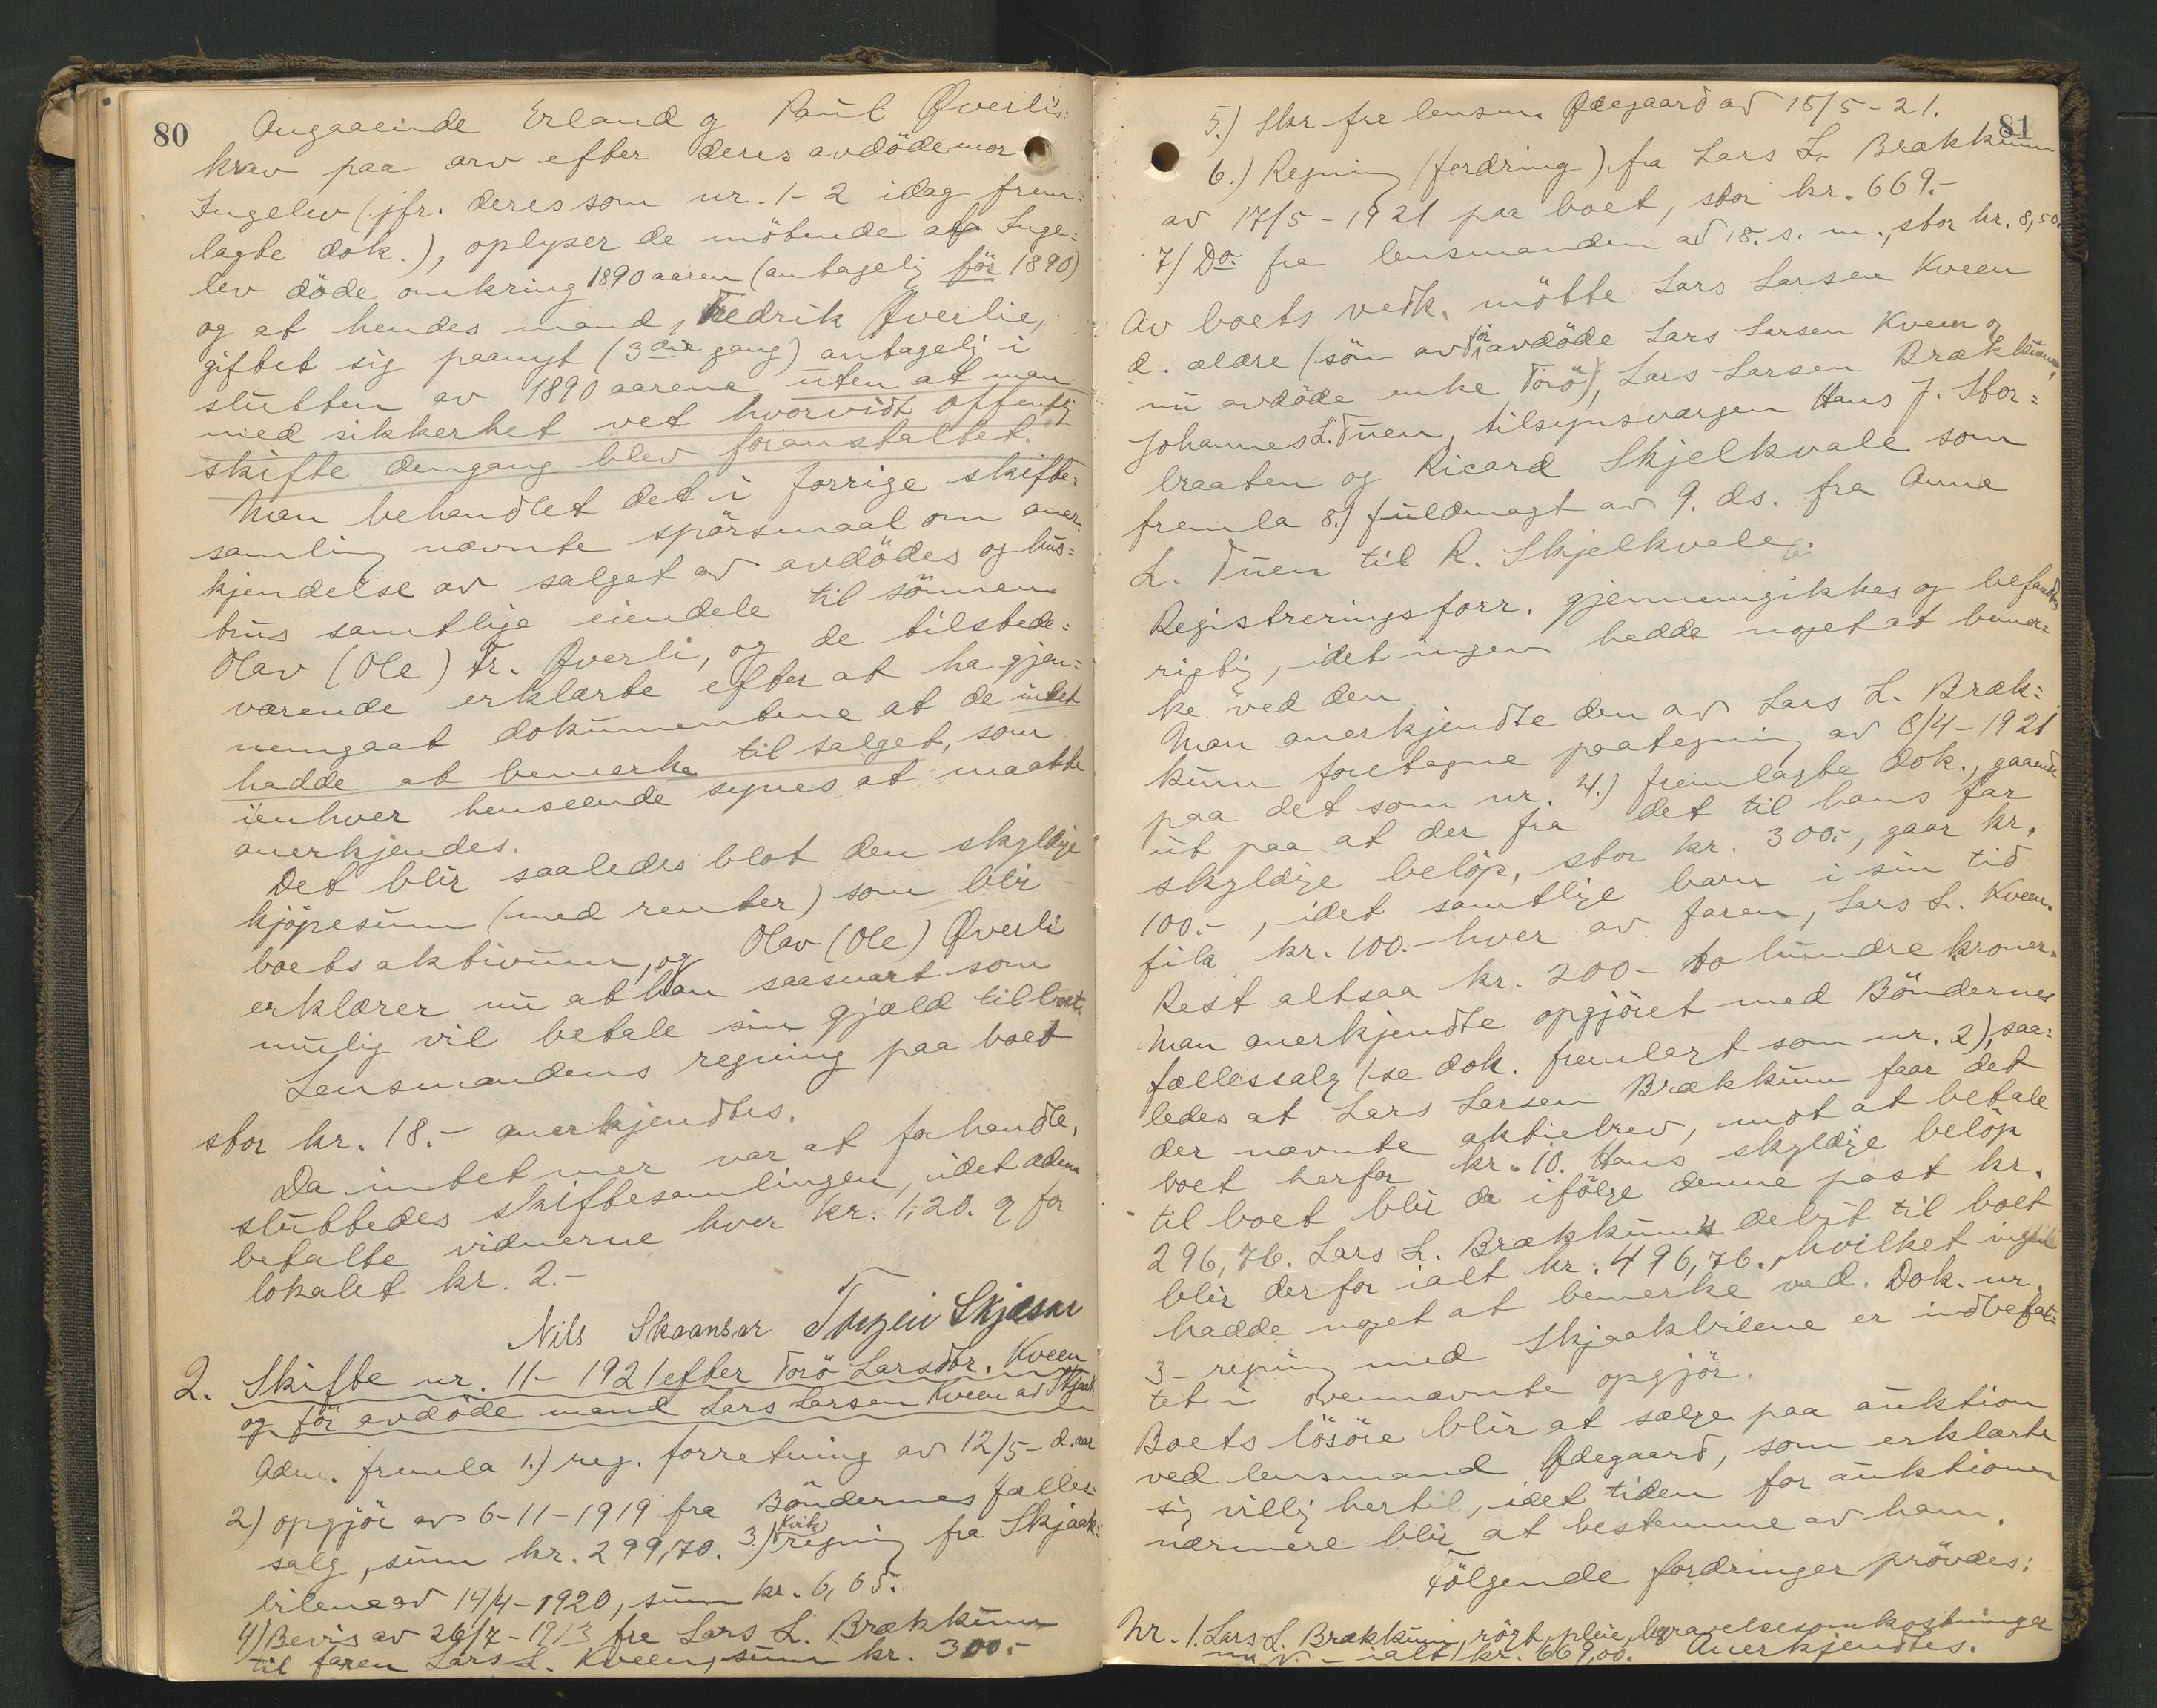 80
Angaaende Erland og Paul Øverli's:
krav paa arv efter deres avdöde mor
Ingelev (jfr. deres som nr. 1-2 idag frem:
lagte dok.), oplyser de möbende at Inge:
lev döde omkring 1890 aaren (antagelig för 1890)
og at hendes mand, Fredrik Øverlie,
giftet sig paanyt (3die gang) antagelig i
slutten av 1890 aarene uten at man
med sikkerhet vet hvorvidt offentlig
skifte dengang blev foranstaltet.
Man behandlet det i forrige skifte:
samling nævnte spörsmaal om aner:
kjendelse av salget av avdödes og hus:
trus samtlige eiendele til sönnen
Olav (Ole) Fr. Øverli, og de tilstede:
værende erklærte efter at ha gjen:
nemgaat dokumentene at de intet
hadde at bemerke til salget, som
i enhver henseende synes at maatte
anerkjendes.
Det blir saaledes blot den skyldige
kjöpesum (med renter) som blir
boets aktivum, og Olav (Ole) Øverli
erklærer nu at han saasnart som
mulig vil betale sin gjæld til boet.
Lensmandens regning paa boet
stor kr. 18.- anerkjendtes.
Da intet mer var at forhandle,
sluttedes skiftesamlingen, idet adm.
betalte vidnerne hver kr. 1,20. og for
lokalet kr. 2.-
Nils Skaansar
2. Skifte nr. 11- 1921 efter Torö Larsdtr. Kveen
og för avdöde mand Lars Larsen Kveen av Skjaak
Adm. fremla 1.) reg. forretning av 12/5- d. aar
2) opgjör av 6-11-1919 fra Böndernes fælles:
salg, sum kr. 299,70. 3.) Kvit. regning fra Skjaak:
bilene av 14/4-1920, sum kr. 6,65.
4) Bevis av 26/7-1913 fra Lars L. Brækkum
til faren Lars L. Kveen, sum kr. 300.-
81
5.) Skr. fra lensm. Ødegaard av 18/5-21.
6.) Regning (fordring) fra Lars L. Brækkum
av 17/5-1921 paa boet, stor kr. 669.-
7) Do. fra lensmanden av 18. s. m., stor kr. 8,50.
Av boets vedk. mötte Lars Larsen Kveen
d. ældre (sön av för avdöde Lars Larsen Kveen og
nu avdöde enke Torö), Lars Larsen Brækkum,
Johannes L. Tuen, tilsynsvergen Hans J. Stor:
braaten og Ricard Skjelkvale som
fremla 8.) fuldmagt av 9. ds. fra Anne
L. Tuen til R. Skjelkvale.
Registreringsforr. gjennemgikkes og befandtes
rigtig, idet ingen hadde noget at bemer:
ke ved den.
Man anerkjendte den av Lars L. Bræk:
kum foretagne paategning av 8/4-1921
paa det som nr. 4.) fremlagte dok., gaaende
ut paa at der fra det til hans far
skyldige belöp, stor kr. 300.-, gaar kr.
100.-, idet samtlige barn i sin tid
fik kr. 100.- hver av faren, Lars L. Kveen.
Rest altsaa kr. 200- to hundre kroner.
Man anerkjendte opgjöret med Böndernes
fællessalg (se dok. fremlagt som nr. 2), saa:
ledes at Lars Larsen Brækkum faar det
der nævnte aktiebrev, mot at betale
boet herfor kr. 10. Hans skyldige belöp
til boet blir da ifölge denne post kr.
296,76. Lars L. Brækkums debit til boet
blir derfor ialt kr. 496,76., hvilket ingen
hadde noget at bemerke ved. Dok. nr.
3 - regning med Skjaakbilene er indbefat:
tet i ovennævnte opgjör.
Boets lösöre blir at sælge paa auktion
ved lensmand Ødegaard, som erklærte
sig villig hertil, idet tiden for auktionen
nærmere blir at bestemme av ham.
Fölgende fordringer prövdes:
Nr. 1. Lars L. Brækkum, rört pleie, begravelsesomkostninger
m. v. - ialt kr. 669,00. Anerkjendtes.